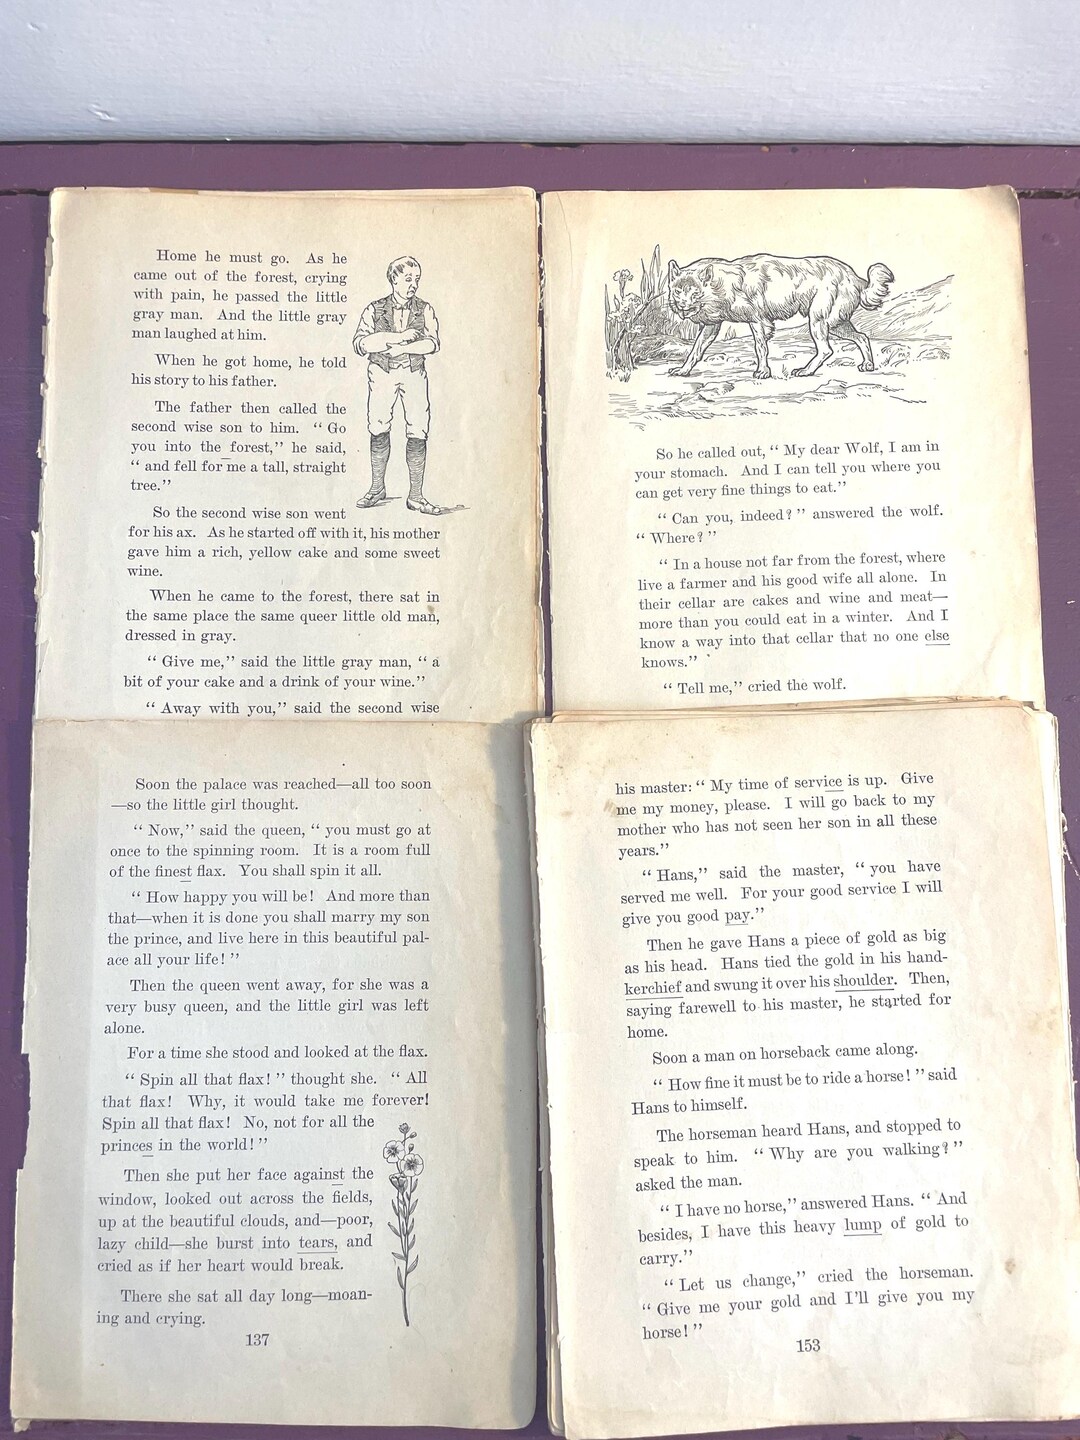 Home he must go. As he
came out of the forest, crying
with pain, he passed the little
gray man. And the little gray
man laughed at him.
When he got home, he told
his story to his father.
The father then called the
second wise son to him. “ Go
you into the forest,” he said,
“ and fell for me a tall, straight
tree.”
So the second wise son went
for his ax. As he started off with it, his mother
gave him a rich, yellow cake and some sweet
wine.
When he came to the forest, there sat in
the same place the same queer little old man,
dressed in gray.
“ Give me,” said the little gray man, “ a
bit of your cake and a drink of your wine.”
“ Away with you,” said the second wise
So he called out, “ My dear Wolf, I am in
your stomach. And I can tell you where you
can get very fine things to eat.”
“ Can you, indeed? ” answered the wolf.
“ Where? ”
“ In a house not far from the forest, where
live a farmer and his good wife all alone. In
their cellar are cakes and wine and meat—
more than you could eat in a winter. And I
know a way into that cellar that no one else
knows.”
“ Tell me,” cried the wolf.
Soon the palace was reached—all too soon
—so the little girl thought.
“ Now,” said the queen, “ you must go at
once to the spinning room. It is a room full
of the finest flax. You shall spin it all.
“ How happy you will be! And more than
that—when it is done you shall marry my son
the prince, and live here in this beautiful pal-
ace all your life! ”
Then the queen went away, for she was a
very busy queen, and the little girl was left
alone.
For a time she stood and looked at the flax.
“ Spin all that flax! ” thought she. “ All
that flax! Why, it would take me forever!
Spin all that flax! No, not for all the
princes in the world! ”
Then she put her face against the
window, looked out across the fields,
up at the beautiful clouds, and—poor,
lazy child—she burst into tears, and
cried as if her heart would break.
There she sat all day long—moan-
ing and crying.
137
his master: “ My time of service is up. Give
me my money, please. I will go back to my
mother who has not seen her son in all these
years.”
“ Hans,” said the master, “ you have
served me well. For your good service I will
give you good pay.”
Then he gave Hans a piece of gold as big
as his head. Hans tied the gold in his hand-
kerchief and swung it over his shoulder. Then,
saying farewell to his master, he started for
home.
Soon a man on horseback came along.
“ How fine it must be to ride a horse! ” said
Hans to himself.
The horseman heard Hans, and stopped to
speak to him. “ Why are you walking? ”
asked the man.
“ I have no horse,” answered Hans. “ And
besides, I have this heavy lump of gold to
carry.”
“ Let us change,” cried the horseman.
“ Give me your gold and I’ll give you my
horse! ”
153